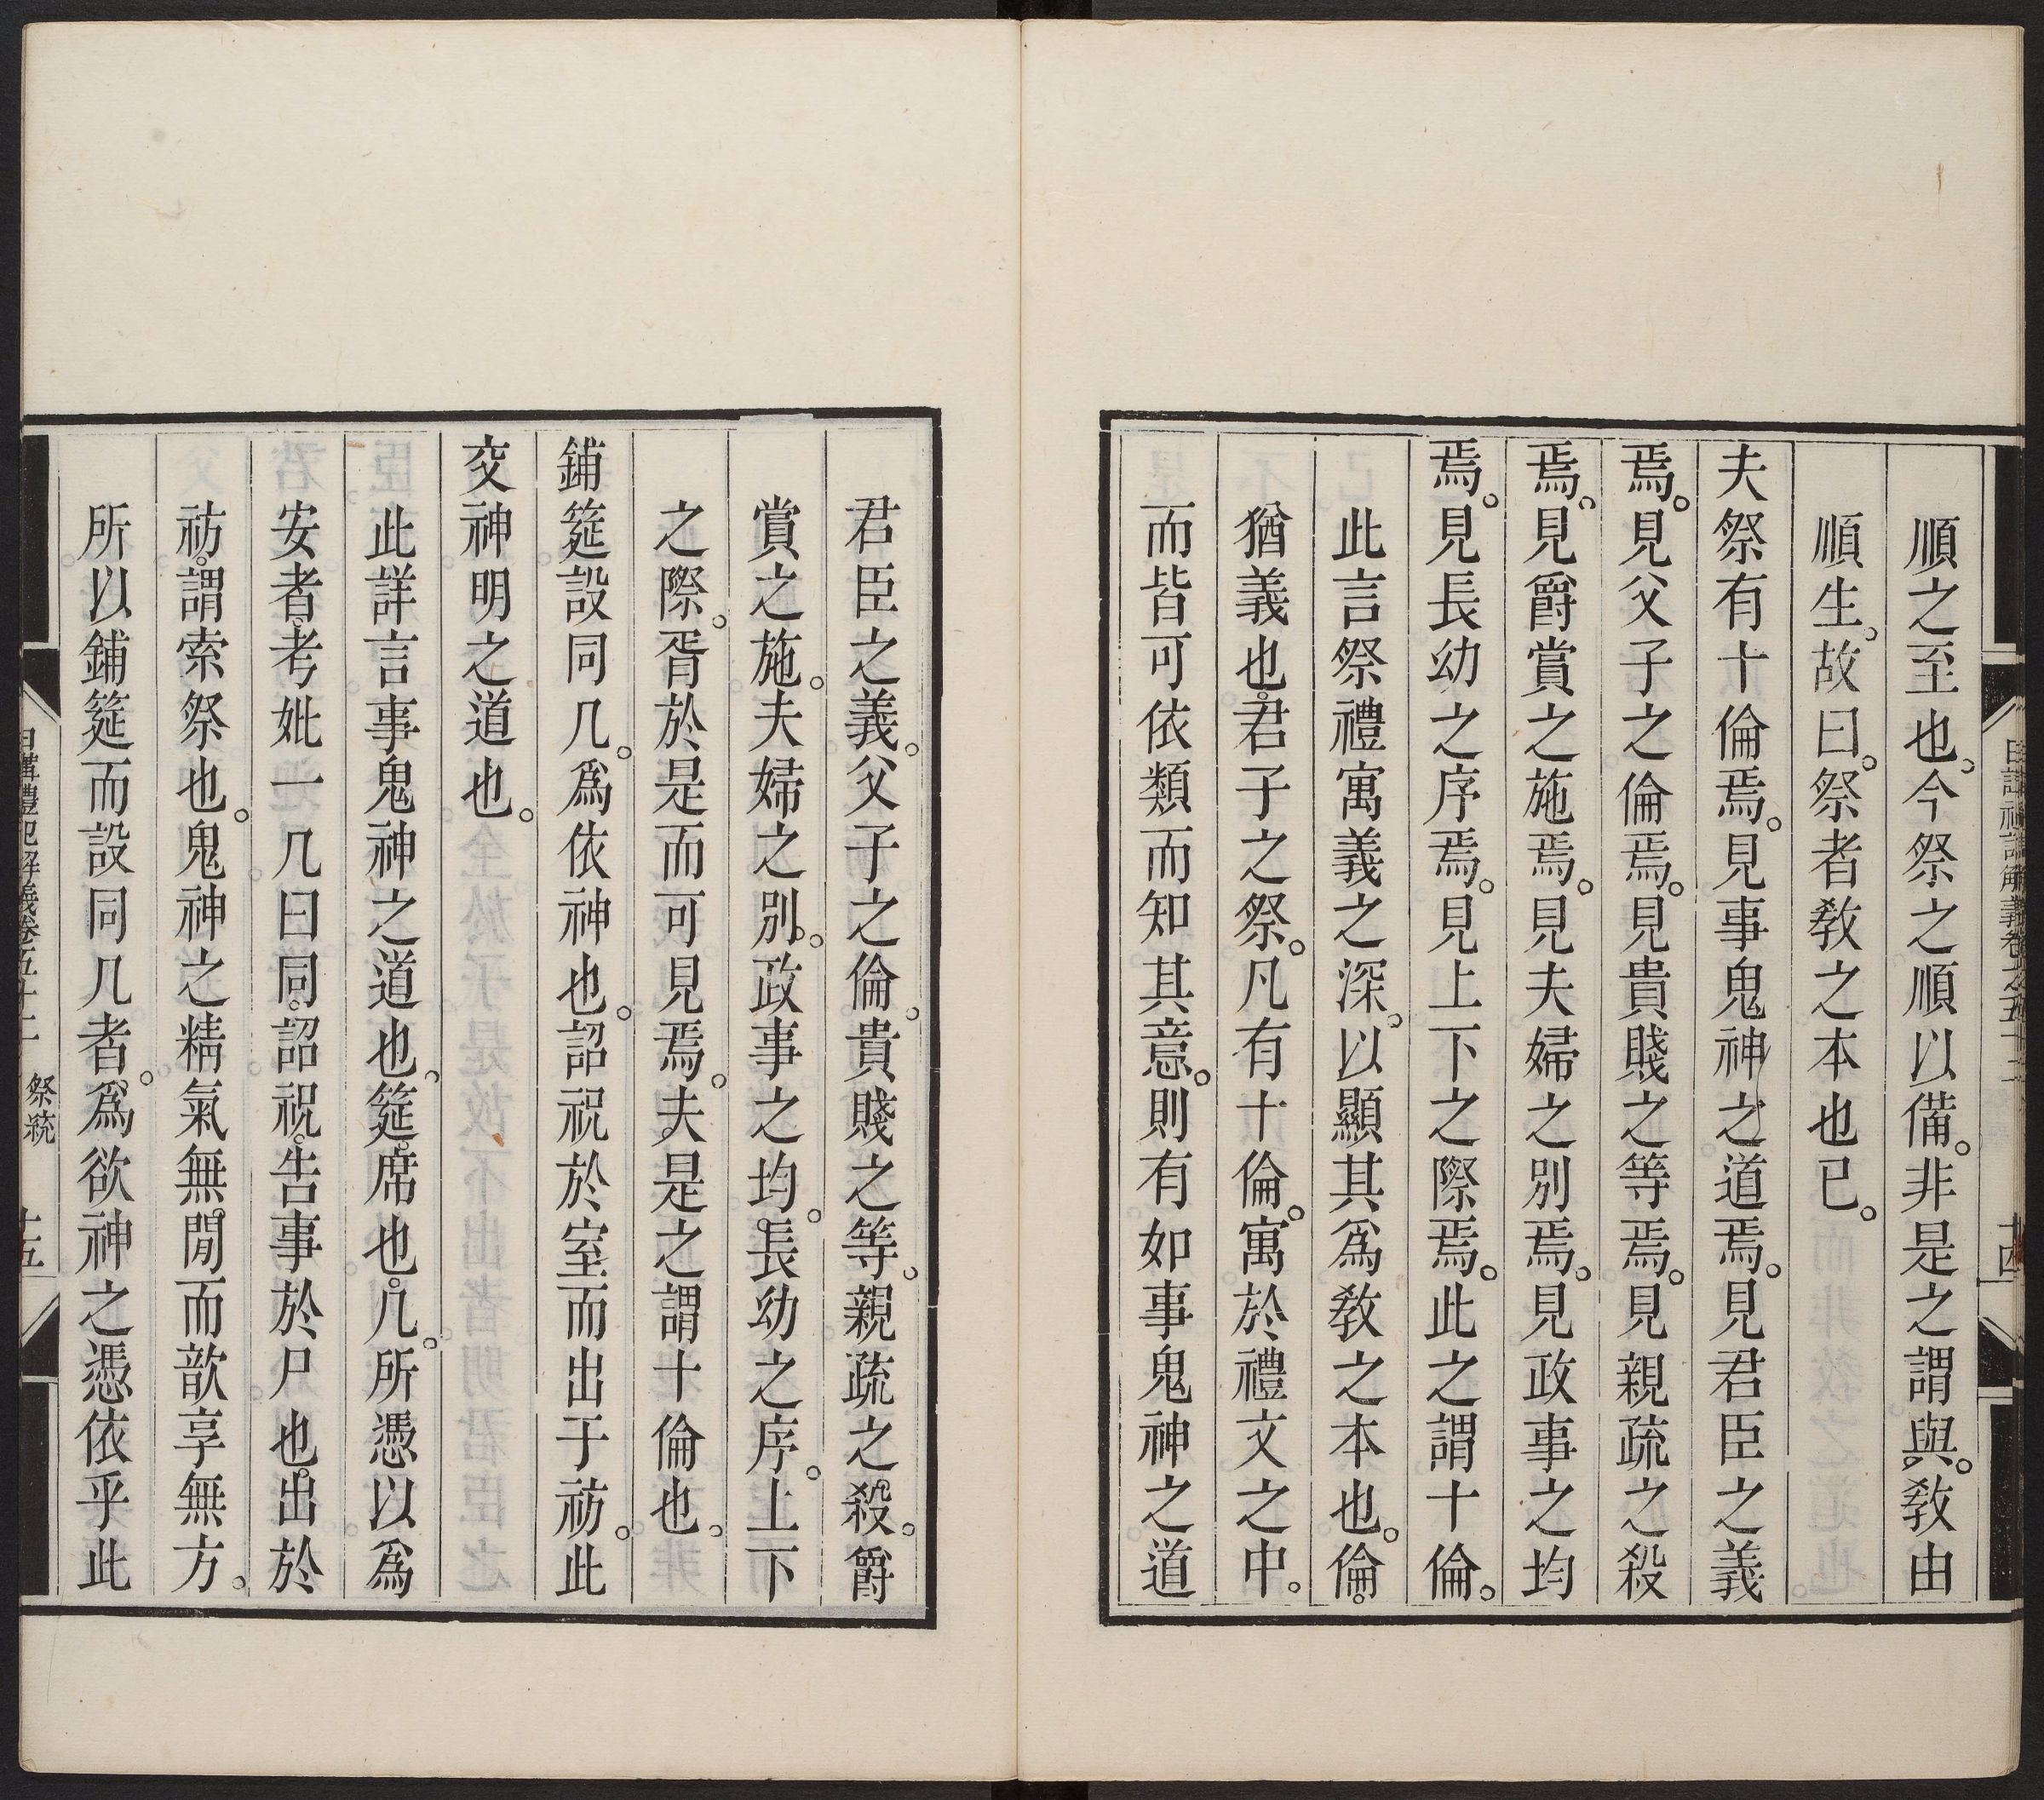 順之至也。今祭之順以備。非是之謂與。教由
順生。故曰。祭者教之本也已。
夫祭有十倫焉。見事鬼神之道焉。見君臣之義
焉。見父子之倫焉。見貴賤之等焉。見親疏之殺
焉。見爵賞之施焉。見夫婦之別焉。見政事之均
焉。見長幼之序焉。見上下之際焉。此之謂十倫。
此言祭禮寓義之深。以顯其爲教之本也。倫。
猶義也。君子之祭。凡有十倫。寓於禮文之中。
而皆可依類而知其意。則有如事鬼神之道
君臣之義。父子之倫。貴賤之等。親疏之殺。爵
賞之施。夫婦之別。政事之均。長幼之序。上下
之際。胥於是而可見焉。夫是之謂十倫也。
鋪筵設同几。爲依神也。詔祝於室而出于祊。此
交神明之道也。
此詳言事鬼神之道也。筵。席也。几。所憑以爲
安者。考妣一几曰同。詔祝。告事於尸也。出於
祊。謂索祭也。鬼神之精氣無閒而歆享無方。
所以鋪筵而設同几者。爲欲神之憑依乎此
日講禮記解義卷五十二 祭統 十五
日講禮記解義卷之五十二 十四